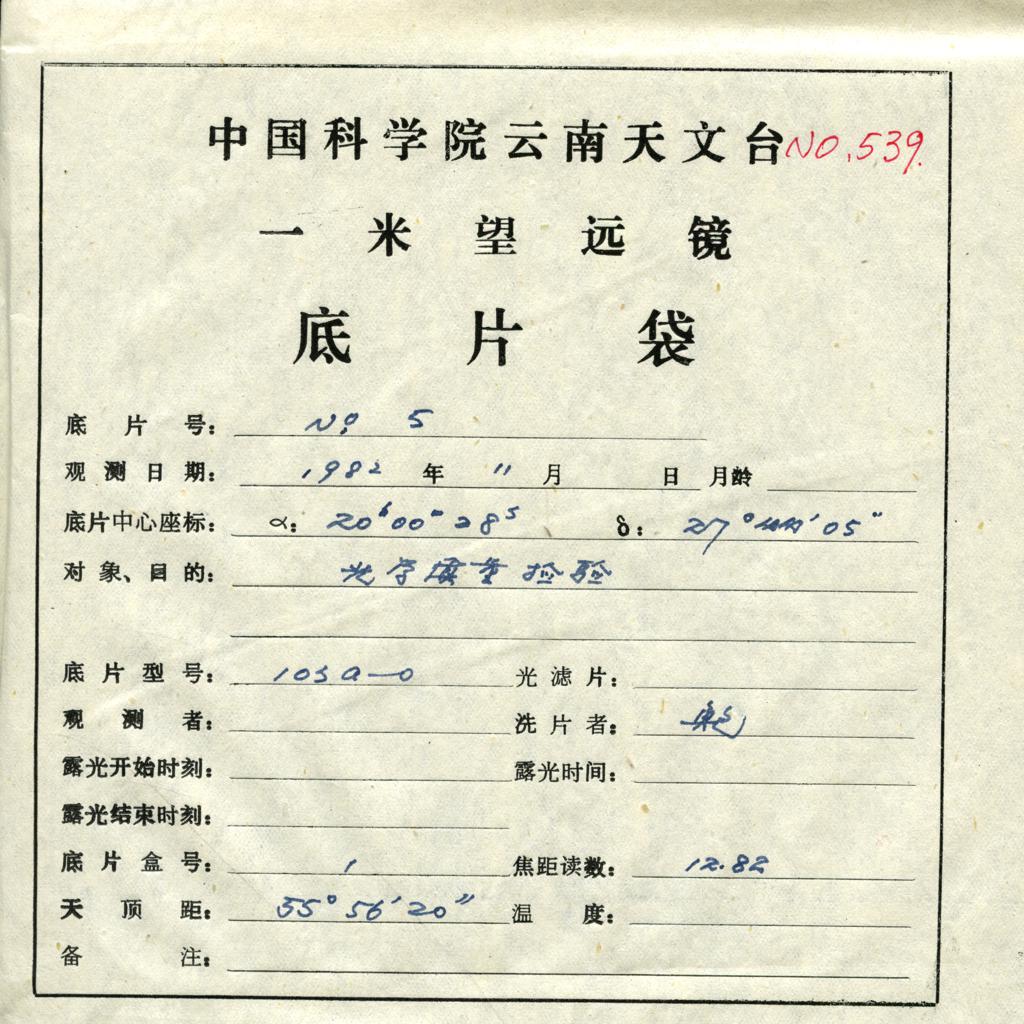 中国科学院云南天文台 NO.539.
一米望远镜
底片袋
底片号: No 5
观测日期: 1982 年 11 月 日 月龄
底片中心座标: α: 20h00m28s δ: 27°44'05"
对象、目的: 光学质量检验
底片型号: 103a-0 光滤片:
观测者: 洗片者:
露光开始时刻: 露光时间:
露光结束时刻:
底片盒号: 1 焦距读数: 12.82
天顶距: 55°56'20" 温度:
备注: